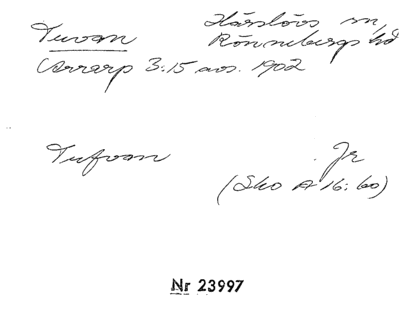 Tuvan Härslövs sn,
Rönnebergs hd
Arrarp 3:15 avs. 1902
Tufvan Jr
(Sko A 16:60)
Nr 23997